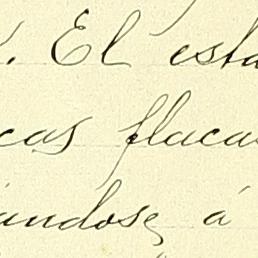 . El esta
cas flacas
ándose á